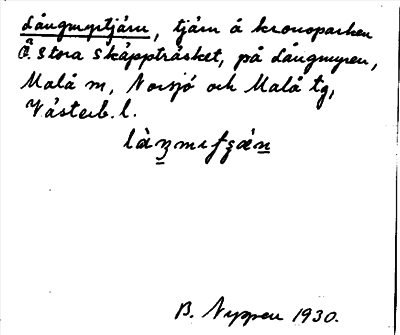 Långmyrtjärn, tjärn å kronoparken
Ö. Stora Skäppträsket, på Långmyren,
Malå m, Norsjö och Malå tg,
Västerb. l.
B. Nyppen 1930.